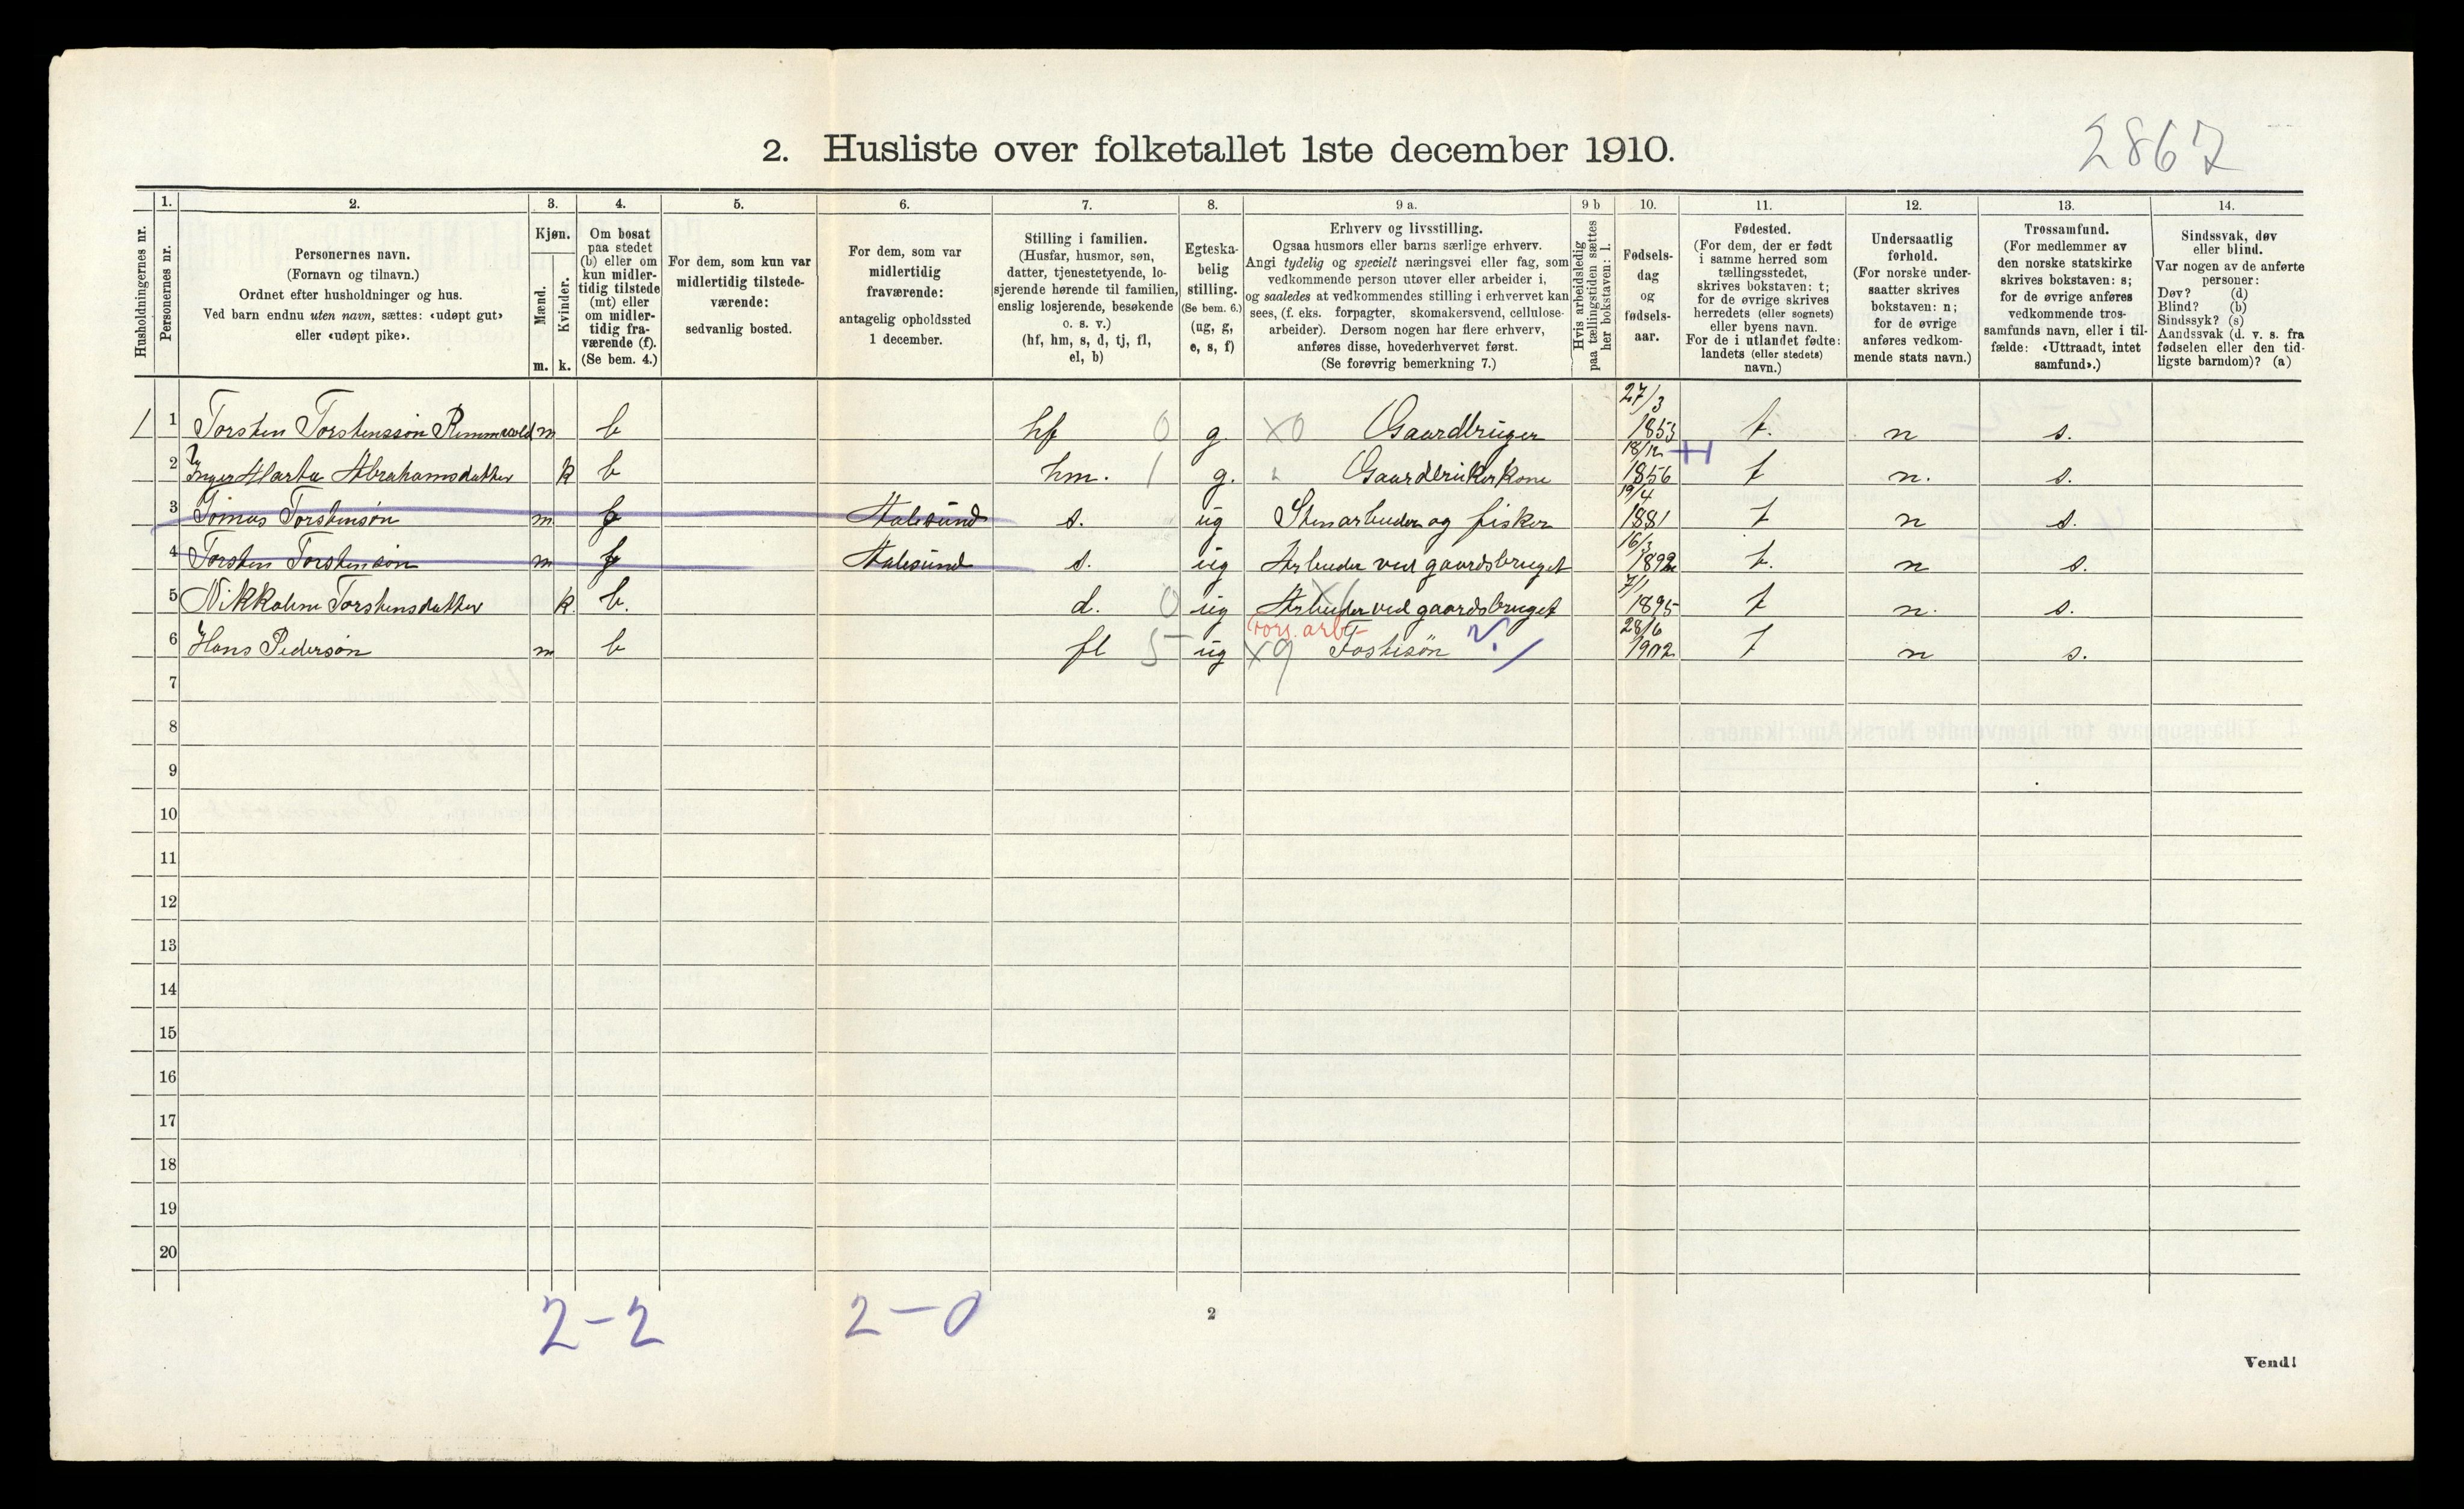 2867
2. Husliste over folketallet 1ste december 1910.
Husholdningernes nr.
1. Personernes nr.
2. Personernes navn.
(Fornavn og tilnavn.)
Ordnet efter husholdninger og hus.
Ved barn endnu uten navn, sættes: «udøpt gut»
eller «udøpt pike».
3. Kjøn.
Mænd. m.
Kvinder. k.
4. Om bosat
paa stedet
(b) eller om
kun midler-
tidig tilstede
(mt) eller
om midler-
tidig fra-
værende (f).
(Se bem. 4.)
5. For dem, som kun var
midlertidig tilstede-
værende:
sedvanlig bosted.
6. For dem, som var
midlertidig
fraværende:
antagelig opholdssted
1 december.
7. Stilling i familien.
(Husfar, husmor, søn,
datter, tjenestetyende, lo-
sjerende hørende til familien,
enslig losjerende, besøkende
o. s. v.)
(hf, hm, s, d, tj, fl,
el, b)
8. Egteska-
belig
stilling.
(Se bem. 6.)
(ug, g,
e, s, f)
9 a. Erhverv og livsstilling.
Ogsaa husmors eller barns særlige erhverv.
Angi tydelig og specielt næringsvei eller fag, som
vedkommende person utøver eller arbeider i,
og saaledes at vedkommendes stilling i erhvervet kan
sees, (f. eks. forpagter, skomakersvend, cellulose-
arbeider). Dersom nogen har flere erhverv,
anføres disse, hovederhvervet først.
(Se forøvrig bemerkning 7.)
9 b Hvis arbeidsledig
paa tællingstiden sættes
her bokstaven: l.
10. Fødsels-
dag
og
fødsels-
aar.
11. Fødested.
(For dem, der er født
i samme herred som
tællingsstedet,
skrives bokstaven: t;
for de øvrige skrives
herredets (eller sognets)
eller byens navn.
For de i utlandet fødte:
landets (eller stedets)
navn.)
12. Undersaatlig
forhold.
(For norske under-
saatter skrives
bokstaven: n;
for de øvrige
anføres vedkom-
mende stats navn.)
13. Trossamfund.
(For medlemmer av
den norske statskirke
skrives bokstaven: s;
for de øvrige anføres
vedkommende tros-
samfunds navn, eller i til-
fælde: «Uttraadt, intet
samfund».)
14. Sindssvak, døv
eller blind.
Var nogen av de anførte
personer:
Døv? (d)
Blind? (b)
Sindssyk? (s)
Aandssvak (d. v. s. fra
fødselen eller den tid-
ligste barndom)? (a)
1 1 Torsten Torstenssøn Remmevold m b hf 0 g. X0 Gaardbruger 27/3 1853 t. n s.
2 Inger Marta Abrahamsdatter k b hm. 1 g. " Gaardbrukerkone 18/12 1856 t n. s.
3 Tomas Torstensøn m f Aalesund s. ug Stenarbeider og fisker 19/4 1881 t n s.
4 Torsten Torstensøn m f Aalesund s. ug Arbeider ved gaardsbruget 16/3 1892 t. n s.
5 Nikkoline Torstensdatter k. b. d. 0 ug Arbeider ved gaardsbruget 7/1 1895 t n. s.
6 Hans Pedersøn m b fl 5 ug X9 fors. arb- Fostersøn 28/6 1902 t n s.
7
8
9
10
11
12
13
14
15
16
17
18
19
20
2-2 2-0
2
Vend!